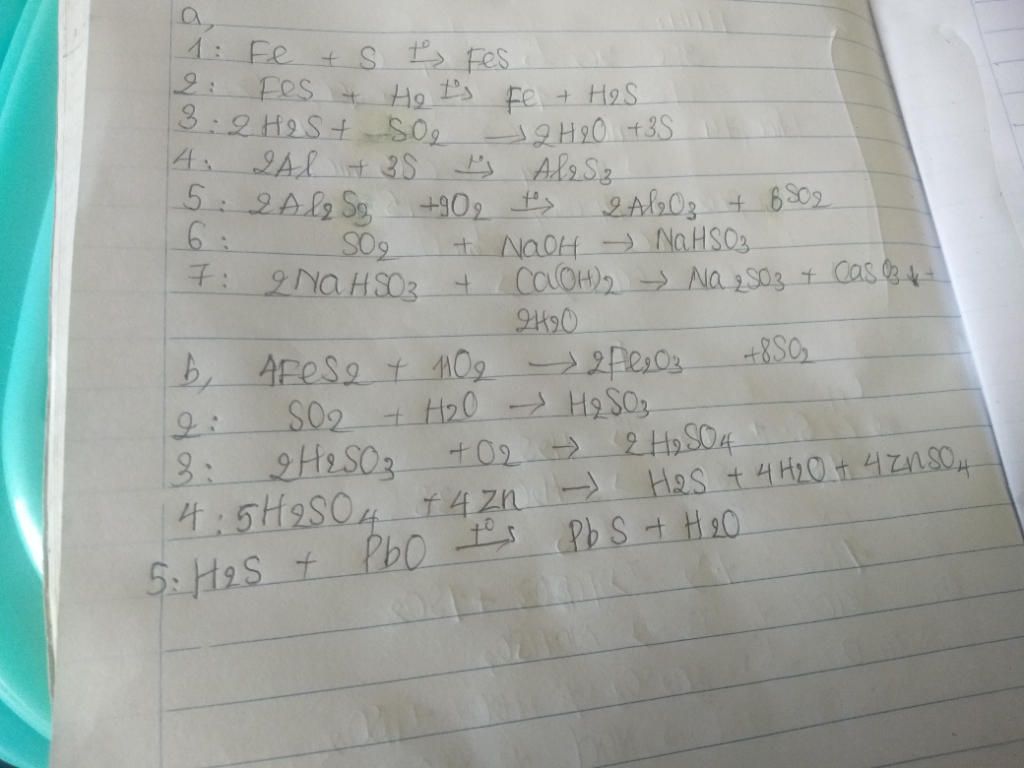 a,
1: Fe + S t°→ FeS
2: FeS + H2 t°→ Fe + H2S
3: 2H2S + SO2 → 2H2O + 3S
4: 2Al + 3S t°→ Al2S3
5: 2Al2S3 + 9O2 t°→ 2Al2O3 + 6SO2
6: SO2 + NaOH → NaHSO3
7: 2NaHSO3 + Ca(OH)2 → Na2SO3 + CaSO3↓ +
2H2O
b, 4FeS2 + 11O2 → 2Fe2O3 + 8SO2
2: SO2 + H2O → H2SO3
3: 2H2SO3 + O2 → 2H2SO4
4: 5H2SO4 + 4Zn → H2S + 4H2O + 4ZnSO4
5: H2S + PbO t°→ PbS + H2O